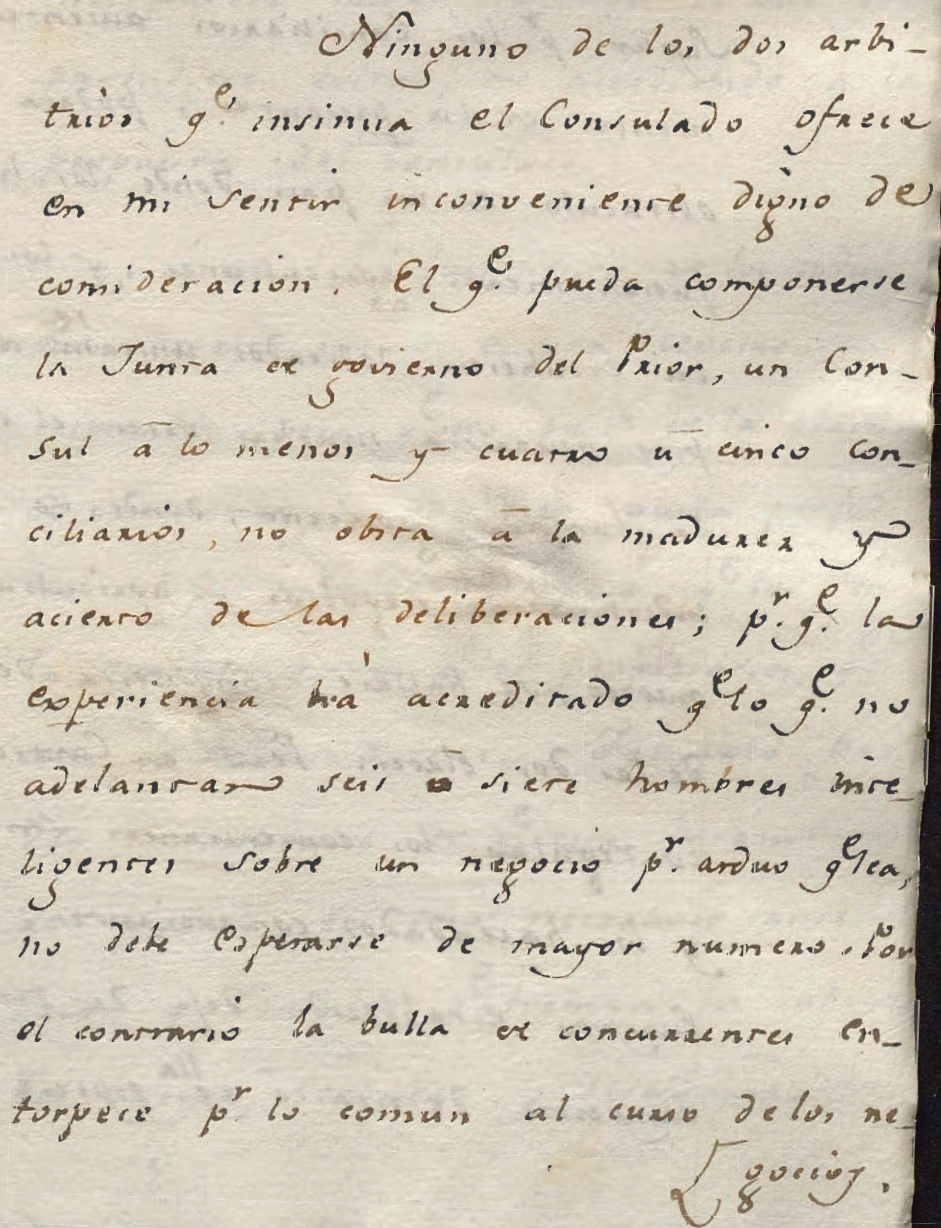 Ninguno de los dos arbi-
trios q.e insinua el Consulado ofrece
en mi sentir inconveniente digno de
consideracion. El q.e pueda componerse
la Junta de govierno del Prior, un Con-
sul â lo menos y cuatro û cinco con-
ciliarios, no obsta â la madurez y
acierto de las deliberaciones; p.r q.e la
experiencia há acreditado q.e lo q.e no
adelantan seis o siete hombres inte-
ligentes sobre un negocio p.r arduo q.e sea,
no debe esperarse de mayor numero. Por
el contrario la bulla de concurrentes en-
torpece p.r lo comun al curso de los ne-
gocios.